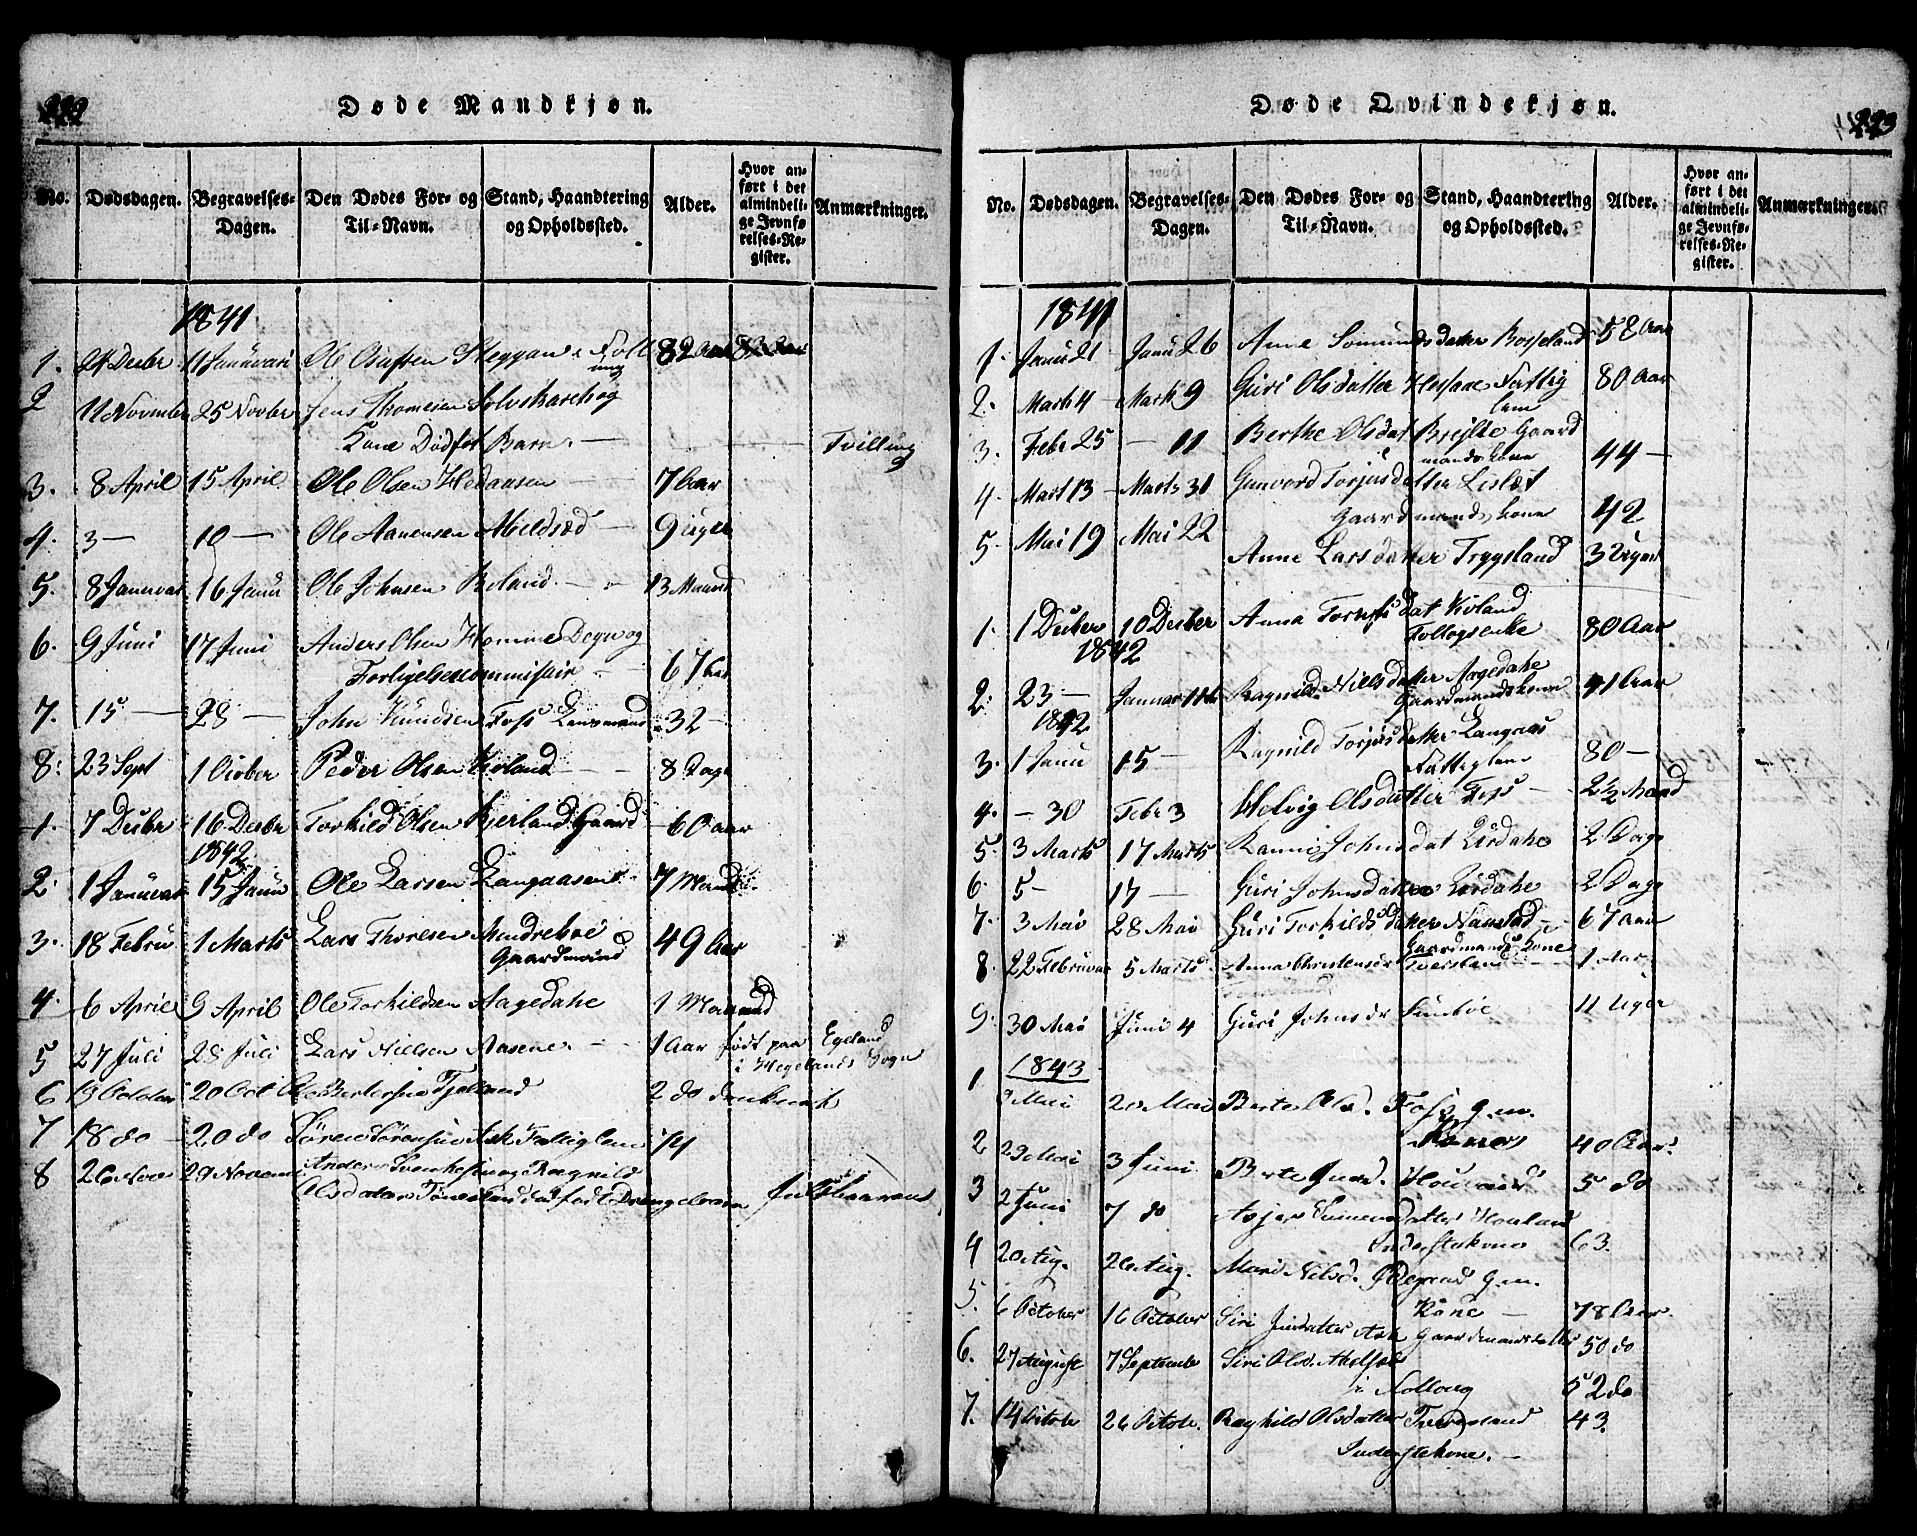 222
Døde Mandkjøn.
No. Dødsdagen. Begravelses-Dagen. Den Dødes For- og Til-Navn. Stand, Haandtering og Opholdssted. Alder. Hvor anført i det almindelige Jevnførelses-Register. Anmærkninger.
1841
1. 21 Decbr 11 Januvari Ole Steggan i Foll 82 Aar
2 11 Novimber 25 Novber Jens Thomesen Solvskareh og
Kone Dødfød Barn. — Tvilling
3. 8 April 15 April Ole Olsen Hedaasen — 7 Aar
4. 3 — 10 — Ole Aanensen — 9 uger
5. 8 Januvar 16 Janu Ole Johnsen Roland — 13 Maand
6. 9 Juni 17 Juni Anders Olsen Homme Degn og
Forligelsescommisair 67 Aar
7. 15 — 28 — John Knudsen Foss Lensmand 32 —
8. 23 Sept 1 Octber Peder Olsen Kvland — 8 Dage
1. 7 Decbr 16 Decbr Torkild Olsen Bierland Gaard 60 aar
1842
2. 1 Januvar 15 Janu Ole Larsen Langaasen 7 Maand
3. 18 Febru 1 Marts Lars Thoresen
Gaardmand 49 Aar
4. 6 April 9 April Ole Torkildsen Aagedahe 1 Maanad
5 27 Juli 28 Juli Lars Nielsen Aasene 1 Aar født paa Egeland
i Hegelands Sogn
6 19 October 20 Oct 2 do
7 18 do 20 do Søren Sørensen Ask Fattiglem 74
8 26 Nov 29 Novem Anders og Ragnild
Olsdatter

223
Døde Qvindekjøn.
No. Dødsdagen. Begravelses-Dagen. Den Dødes For- og Til-Navn. Stand, Haandtering og Opholdssted. Alder. Hvor anført i det almindelige Jevnførelses-Register. Anmærkninger.
1841
1. Janu 21 Janu 26 Anne Somunds datter Bosseland 58 Aar
2. Marts 4 — Marts 9 Guri Olsdatter Hesaae Fattig 80 Aar
lem
3. Febr 25 — 11 Berthe Olsdat Gaard
mands kone 44 —
4. Mart 13 — Marts 31 Gunvord Torjusdatter Lislet
Gaardmands kone 42
5. Mai 19 Mai 22
Anne Larsdatter Trygsland 3 Uger
1. 1 Decber 10 Decber Anna dat Kivland
Follogsenke 80 Aar
1842
2. 23 — Januar 11 Ragnild Niels datter Aagedahe
Gaardmandskone 41 Aar
1842
3. 1 Janu 15 — Ragnild Torjusdatter Langaas
Fattiglem 80 —
4. — 30 Febr 3 Helvig Olsdatter Foss — 2½ Maand
5. 3 Marts 17 Marts Johnsdat Urdahe 2 Dage
6. 5 — 17 — Guri Johnsdatter Urdahe 2 Dage
7. 3 Mai 28 Mai Guri Torkilds datter 67 Aar
Gaardmands Kone
8. 22 Februvar 5 Marts Anna Christensdr Tversland — 1 Aar
9. 30 Mai Juni 4 Guri Johnsdr 11 Uger
1843
1 Mai 20 Mai Berte Olsd. Foss g.m.
Kone 40 Aar
2 29 Mai 3 Juni Berte 5 do
3 2 Juni 7 do datter
Inderstekone 63.
4 20 Aug. 26 Aug. Mari Nilsd. Ødegaard g.m.
Kone — 78 Aar
5. 6 October 16 October Siri datter Ask Gaardmandsdatter 50 do
6. 27 August 7 September Siri Olsd.
52 do
7. 14 Octob. 26 Octob. Raghild Olsdatter Tversland 43.
Inderstekone. —